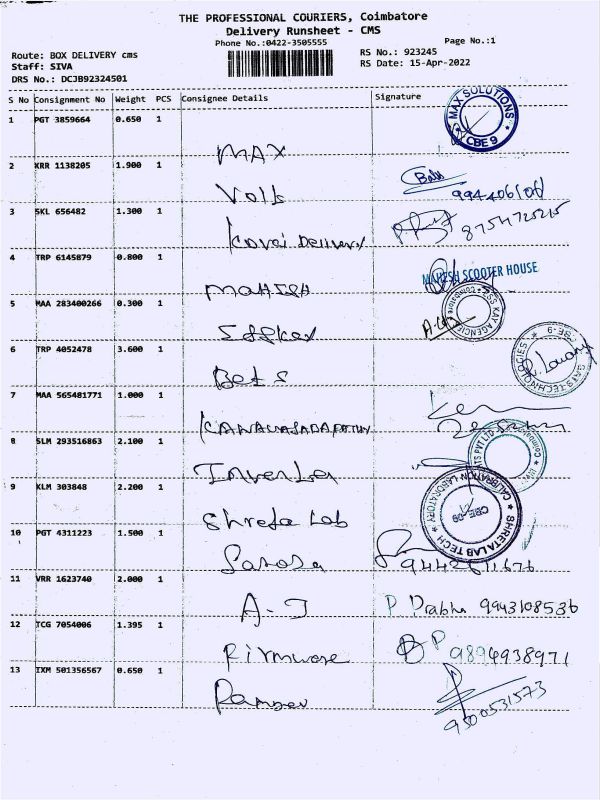 THE PROFESSIONAL COURIERS, Coimbatore
Delivery Runsheet - CMS
Phone No.:0422-3505555
Page No.:1
Route: BOX DELIVERY cms
RS No.: 923245
Staff: SIVA
RS Date: 15-Apr-2022
DRS No.: DCJB92324501
S No Consignment No Weight PCS Consignee Details Signature
1 PGT 3859664 0.650 1
MAX
MAX SOLUTIONS CBE 9
2 KRR 1138205 1.900 1
Volls
3 SKL 656482 1.300 1
Kovai Delivery
8754720215
4 TRP 6145879 0.800 1
MAHESH
MAHESH SCOOTER HOUSE
5 MAA 283400266 0.300 1
6 TRP 4052478 3.600 1
Bets
7 MAA 565481771 1.000 1
8 SLM 293516863 2.100 1
9 KLM 303848 2.200 1
Shreta Lab
SHRETA LAB TECH CALIBRATION LABORATORY CBE-09
10 PGT 4311223 1.500 1
11 VRR 1623740 2.000 1
A-J
P Prabha 9943108536
12 TCG 7054006 1.395 1
Firmware
P 9894938971
13 IXM 501356567 0.650 1
9500531573